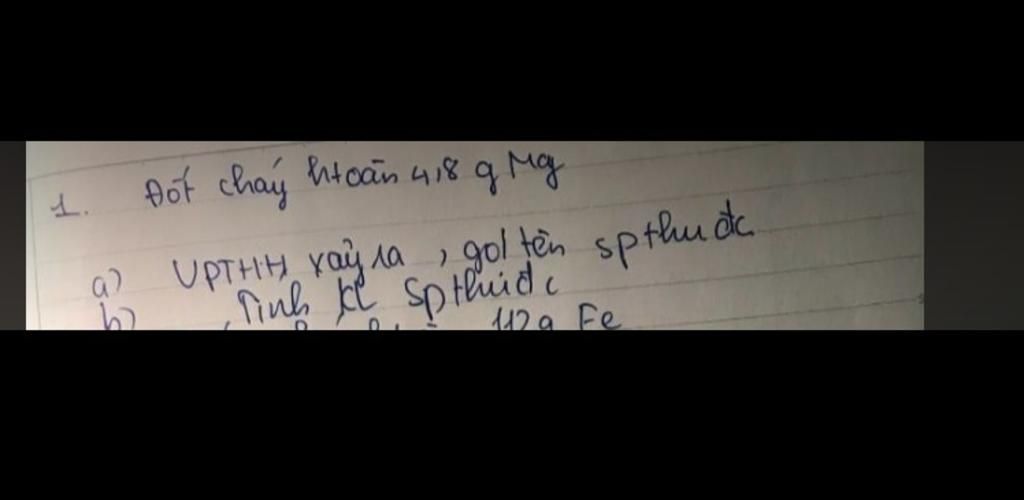 1. Đốt cháy htoàn 4,8 g Mg
a) VPTHH xảy ra, gọi tên sp thu đc
b) Tính kl sp thu đc
112g Fe